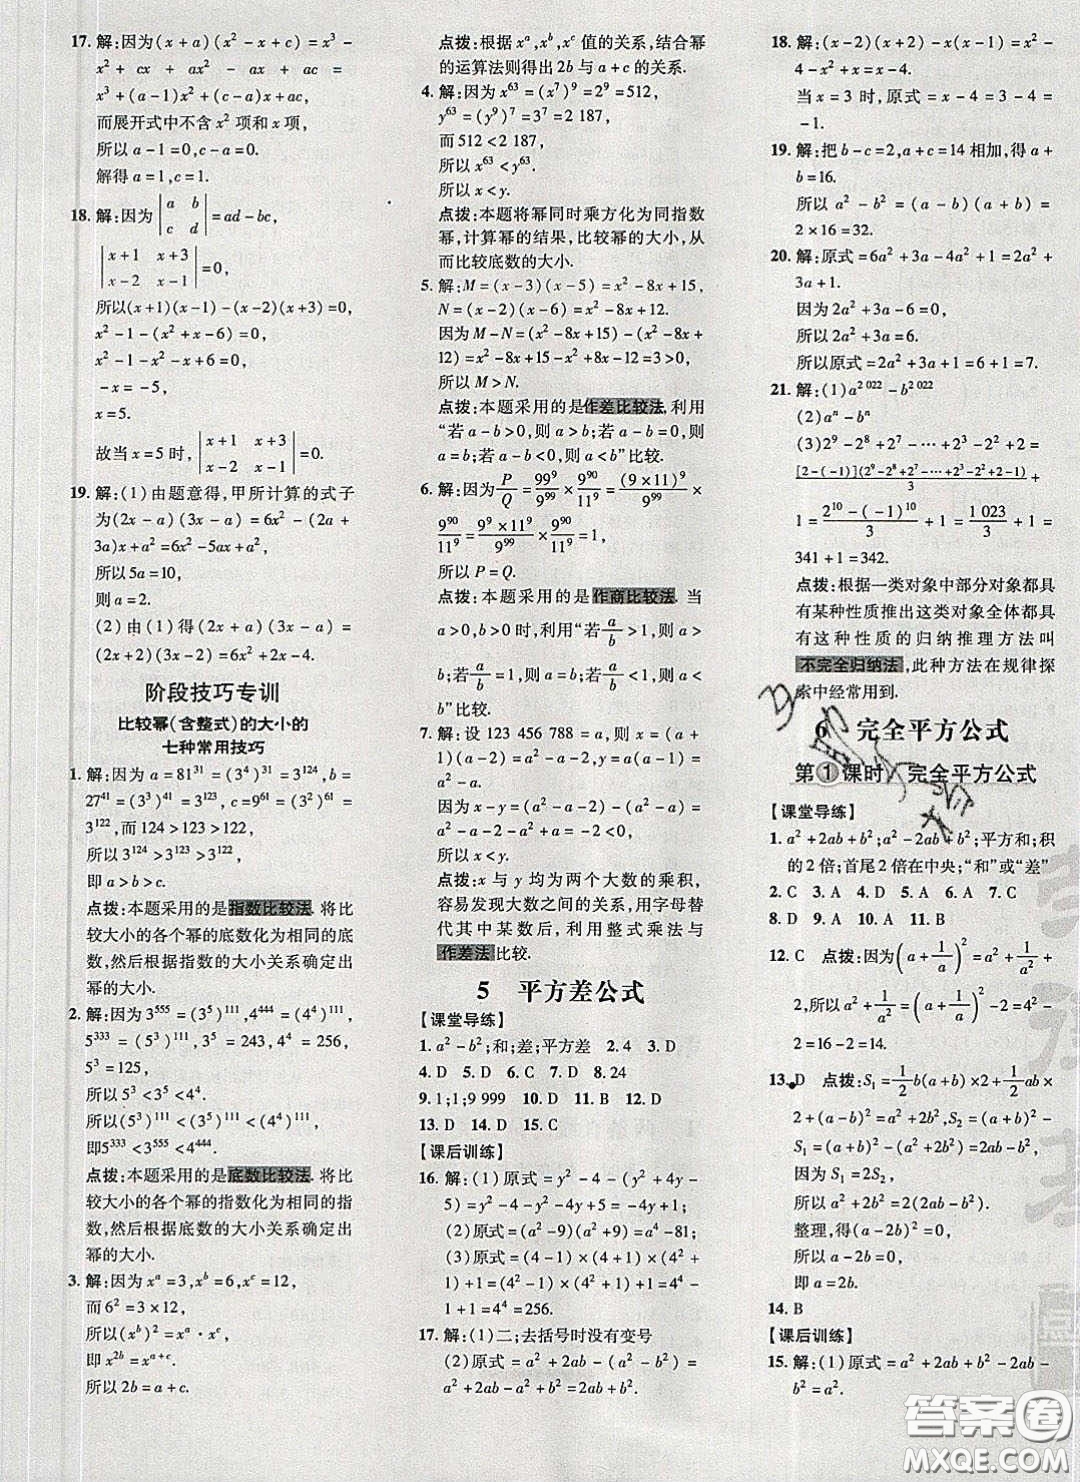 17. 解:因为(x+a)(x²-x+c)=x³-
x²+cx+ax²-ax+ac=
x³+(a-1)x²+(c-a)x+ac,
而展开式中不含 x² 项和 x 项,
所以 a-1=0,c-a=0.
解得 a=1,c=1.
18. 解:因为 |a b; c d| =ad-bc,
|x+1 x+3; x-2 x-1| =0,
所以(x+1)(x-1)-(x-2)(x+3)=0,
x²-1-(x²+x-6)=0,
x²-1-x²-x+6=0,
-x=-5,
x=5.
故当 x=5 时, |x+1 x+3; x-2 x-1| =0.
19. 解:(1)由题意得,甲所计算的式子
为(2x-a)(3x-a)=6x²-(2a+
3a)x+a²=6x²-5ax+a²,
所以5a=10,
则 a=2.
(2)由(1)得(2x+a)(3x-a)=
(2x+2)(3x-2)=6x²+2x-4.
阶段技巧专训
比较幂(含整式)的大小的
七种常用技巧
1. 解:因为 a=81³¹=(3⁴)³¹=3¹²⁴,b=
27⁴¹=(3³)⁴¹=3¹²³,c=9⁶¹=(3²)⁶¹=
3¹²²,124>123>122,
所以3¹²⁴>3¹²³>3¹²²,
即 a>b>c.
点拨:本题采用的是指数比较法. 将比
较大小的各个幂的底数化为相同的底
数,然后根据指数的大小关系确定出
幂的大小.
2. 解:因为3⁵⁵⁵=(3⁵)¹¹¹,4⁴⁴⁴=(4⁴)¹¹¹,
5³³³=(5³)¹¹¹,3⁵=243,4⁴=256,
5³=125,
所以5³<3⁵<4⁴.
所以(5³)¹¹¹<(3⁵)¹¹¹<(4⁴)¹¹¹,
即5³³³<3⁵⁵⁵<4⁴⁴⁴.
点拨:本题采用的是底数比较法. 将比
较大小的各个幂的指数化为相同的指
数,然后根据底数的大小关系确定出
幂的大小.
3. 解:因为 xᵃ=3,xᵇ=6,xᶜ=12,
而6²=3×12,
所以(xᵇ)²=xᵃ·xᶜ,
即 x²ᵇ=xᵃ⁺ᶜ.
所以2b=a+c.
点拨:根据 xᵃ,xᵇ,xᶜ 值的关系,结合幂
的运算法则得出2b与a+c的关系.
4. 解:因为 x⁶³=(x⁷)⁹=2⁹=512,
y⁶³=(y⁹)⁷=3⁷=2 187,
而512<2 187,
所以 x⁶³<y⁶³.
所以 x<y.
点拨:本题将幂同时乘方化为同指数
幂,计算幂的结果,比较幂的大小,从
而比较底数的大小.
5. 解:M=(x-3)(x-5)=x²-8x+15,
N=(x-2)(x-6)=x²-8x+12,
因为 M-N=(x²-8x+15)-(x²-8x+
12)=x²-8x+15-x²+8x-12=3>0,
所以 M>N.
点拨:本题采用的是作差比较法,利用
“若 a-b>0,则 a>b;若 a-b=0,则
a=b;若 a-b<0,则 a<b”比较.
6. 解:因为 P/Q=99⁹/9⁹⁹×9⁹⁰/11⁹=(9×11)⁹/9⁹⁹×
9⁹⁰/11⁹=9⁹×11⁹/9⁹⁹×9⁹⁰/11⁹=1,
所以 P=Q.
点拨:本题采用的是作商比较法. 当
a>0,b>0时,有“若 a/b>1,则 a>
b;若 a/b=1,则 a=b;若 a/b<1,则
a<b”比较.
7. 解:设 123 456 788=a,则 x=
(a+1)(a-2)=a²-a-2,y=
a(a-1)=a²-a.
因为 x-y=(a²-a-2)-(a²-
a)=a²-a-2-a²+a=-2<0,
所以 x<y.
点拨:x 与 y 均为两个大数的乘积,
容易发现大数之间的关系,用字母替
代其中某数后,利用整式乘法与
作差法比较.
5 平方差公式
【课堂导练】
1. a²-b²;和;差;平方差 2. 4 3. D
4. D 5. D 6. C 7. D 8. 24
9. 1;1;9 999 10. D 11. B 12. D
13. D 14. D 15. C
【课后训练】
16. 解:(1)原式=y²-4-y²-4y+
5=y²-y²-4-4y+5=-4y+1.
(2)原式=(a²-9)(a²+9)=a⁴-81.
(3)原式=(4-1)×(4+1)×(4²+
1)+1=(4²-1)×(4²+1)+1=4⁴-
1+1=4⁴=256.
17. 解:(1)二;去括号时没有变号
(2)原式=a²+2ab-(a²-b²)=
a²+2ab-a²+b²=2ab+b².
18. 解:(x-2)(x+2)-x(x-1)=x²-
4-x²+x=x-4.
当 x=3 时,原式=x-4=3-4=
-1.
19. 解:把 b-c=2,a+c=14 相加,得 a+
b=16.
所以 a²-b²=(a-b)(a+b)=
2×16=32.
20. 解:原式=6a²+3a-4a²+1=
2a²+3a+1.
因为2a²+3a-6=0,
所以2a²+3a=6.
所以原式=2a²+3a+1=6+1=7.
21. 解:(1)a²⁰²²-b²⁰²²
(2)aⁿ-bⁿ
(3)2⁹-2⁸+2⁷-…+2³-2²+2=
[2-(-1)](2⁹-2⁸+2⁷-…+2³-2²+2-1)/3+
1=2¹⁰-(-1)¹⁰/3+1=1 023/3+1=
341+1=342.
点拨:根据一类对象中部分对象都具
有某种性质推出这类对象全体都具
有这种性质的归纳推理方法叫
不完全归纳法,此种方法在规律探
索中经常用到.
6 完全平方公式
第①课时 完全平方公式
【课堂导练】
1. a²+2ab+b²;a²-2ab+b²;平方和;积
的2倍;首尾2倍在中央;“和”或“差”
2. C 3. A 4. C 5. A 6. C 7. C
8. D 9. A 10. A 11. B
12. C 点拨:因为(a+1/a)²=a²+1/a²+
2,所以 a²+1/a²=(a+1/a)²-2=4²-
2=16-2=14.
13. D 点拨:S₁=1/2b(a+b)×2+1/2ab×
2+(a-b)²=a²+2b²,S₂=(a+b)²-
S₁=(a+b)²-(a²+2b²)=2ab-b²,
因为 S₁=2S₂,
所以 a²+2b²=2(2ab-b²),
整理,得(a-2b)²=0,
所以 a-2b=0.
即 a=2b.
14. B
【课后训练】
15. 解:(1)原式=a²+2ab+b²-2ab-
b²=a².
答案圈
MXQE.COM